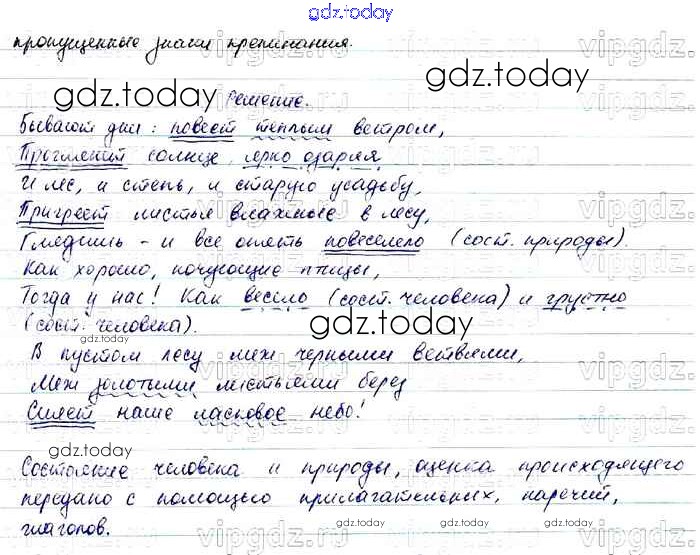 gdz.today
пропущенные знаки препинания.
gdz.today gdz.today
Решение.
Бывают дни: повеет теплым ветром,
Проглянет солнце, ярко озаряя
И лес, и степь, и старую усадьбу,
Пригреет листья влажные в лесу,
Глядишь - и все опять повеселело (сост. природы).
Как хорошо, кочующие птицы,
Тогда у нас! Как весело (сост. человека) и грустно
(сост. человека).
gdz.today
В пустом лесу меж черными ветвями,
Меж золотыми листьями берез
Синеет наше ласковое небо!
gdz.today
Состояние человека и природы, оценка происходящего
передано с помощью прилагательных, наречий,
глаголов.
gdz.today gdz.today
vipgdz.ru